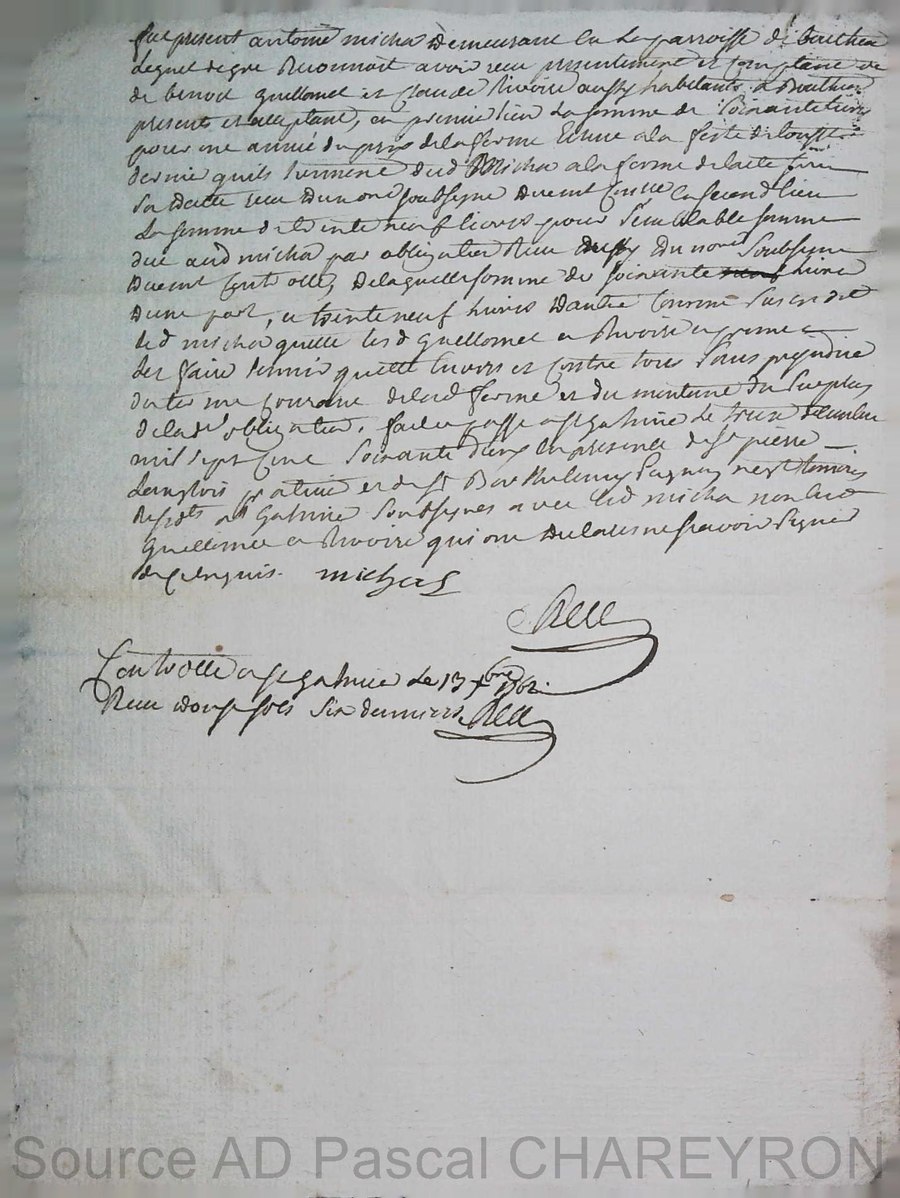 fut present antoine micha demeurant en la parroisse de bouthea
lequel de gre Reconnoit avoir receu presentement et comptant
de benoit guellomet et Claude Rivoire aussy habitants a Bouthea
presents et acceptant, en premier lieu la somme de soixante
pour une année du prix de la ferme Echue a la feste de
dernie quils tiennent dud Micha a la ferme de lacte
sa datte receu dun not soubsigne duement en second lieu
La somme de trente neuf livres pour semblable somme
due aud micha par obligation Receu du no.re soubsigne
duement Controllé, delaquelle somme de soixante livres
dune part, et trente neuf livres dautre
led micha quitte lesd guellomet et Rivoire et promet
les faire tenir quitte envers et contre tous sans prejudice
du terme courant delad ferme et du montant du surplus
de lad.e obligation. fait et passe a st galmier le treize decembre
mil sept Cent soixante deux en presence de s.r pierre
Langlois et de s.r Barthelemy temoins
Resid.ts a st Galmier soubsignes avec led micha non lesd
guellomet et Rivoire qui ont declares ne scavoir signer
de ce enquis. michas
Relle
Controllé a st galmier le 13 xbre 1762.
Receu douze sols six deniers Relle
Source AD Pascal CHAREYRON